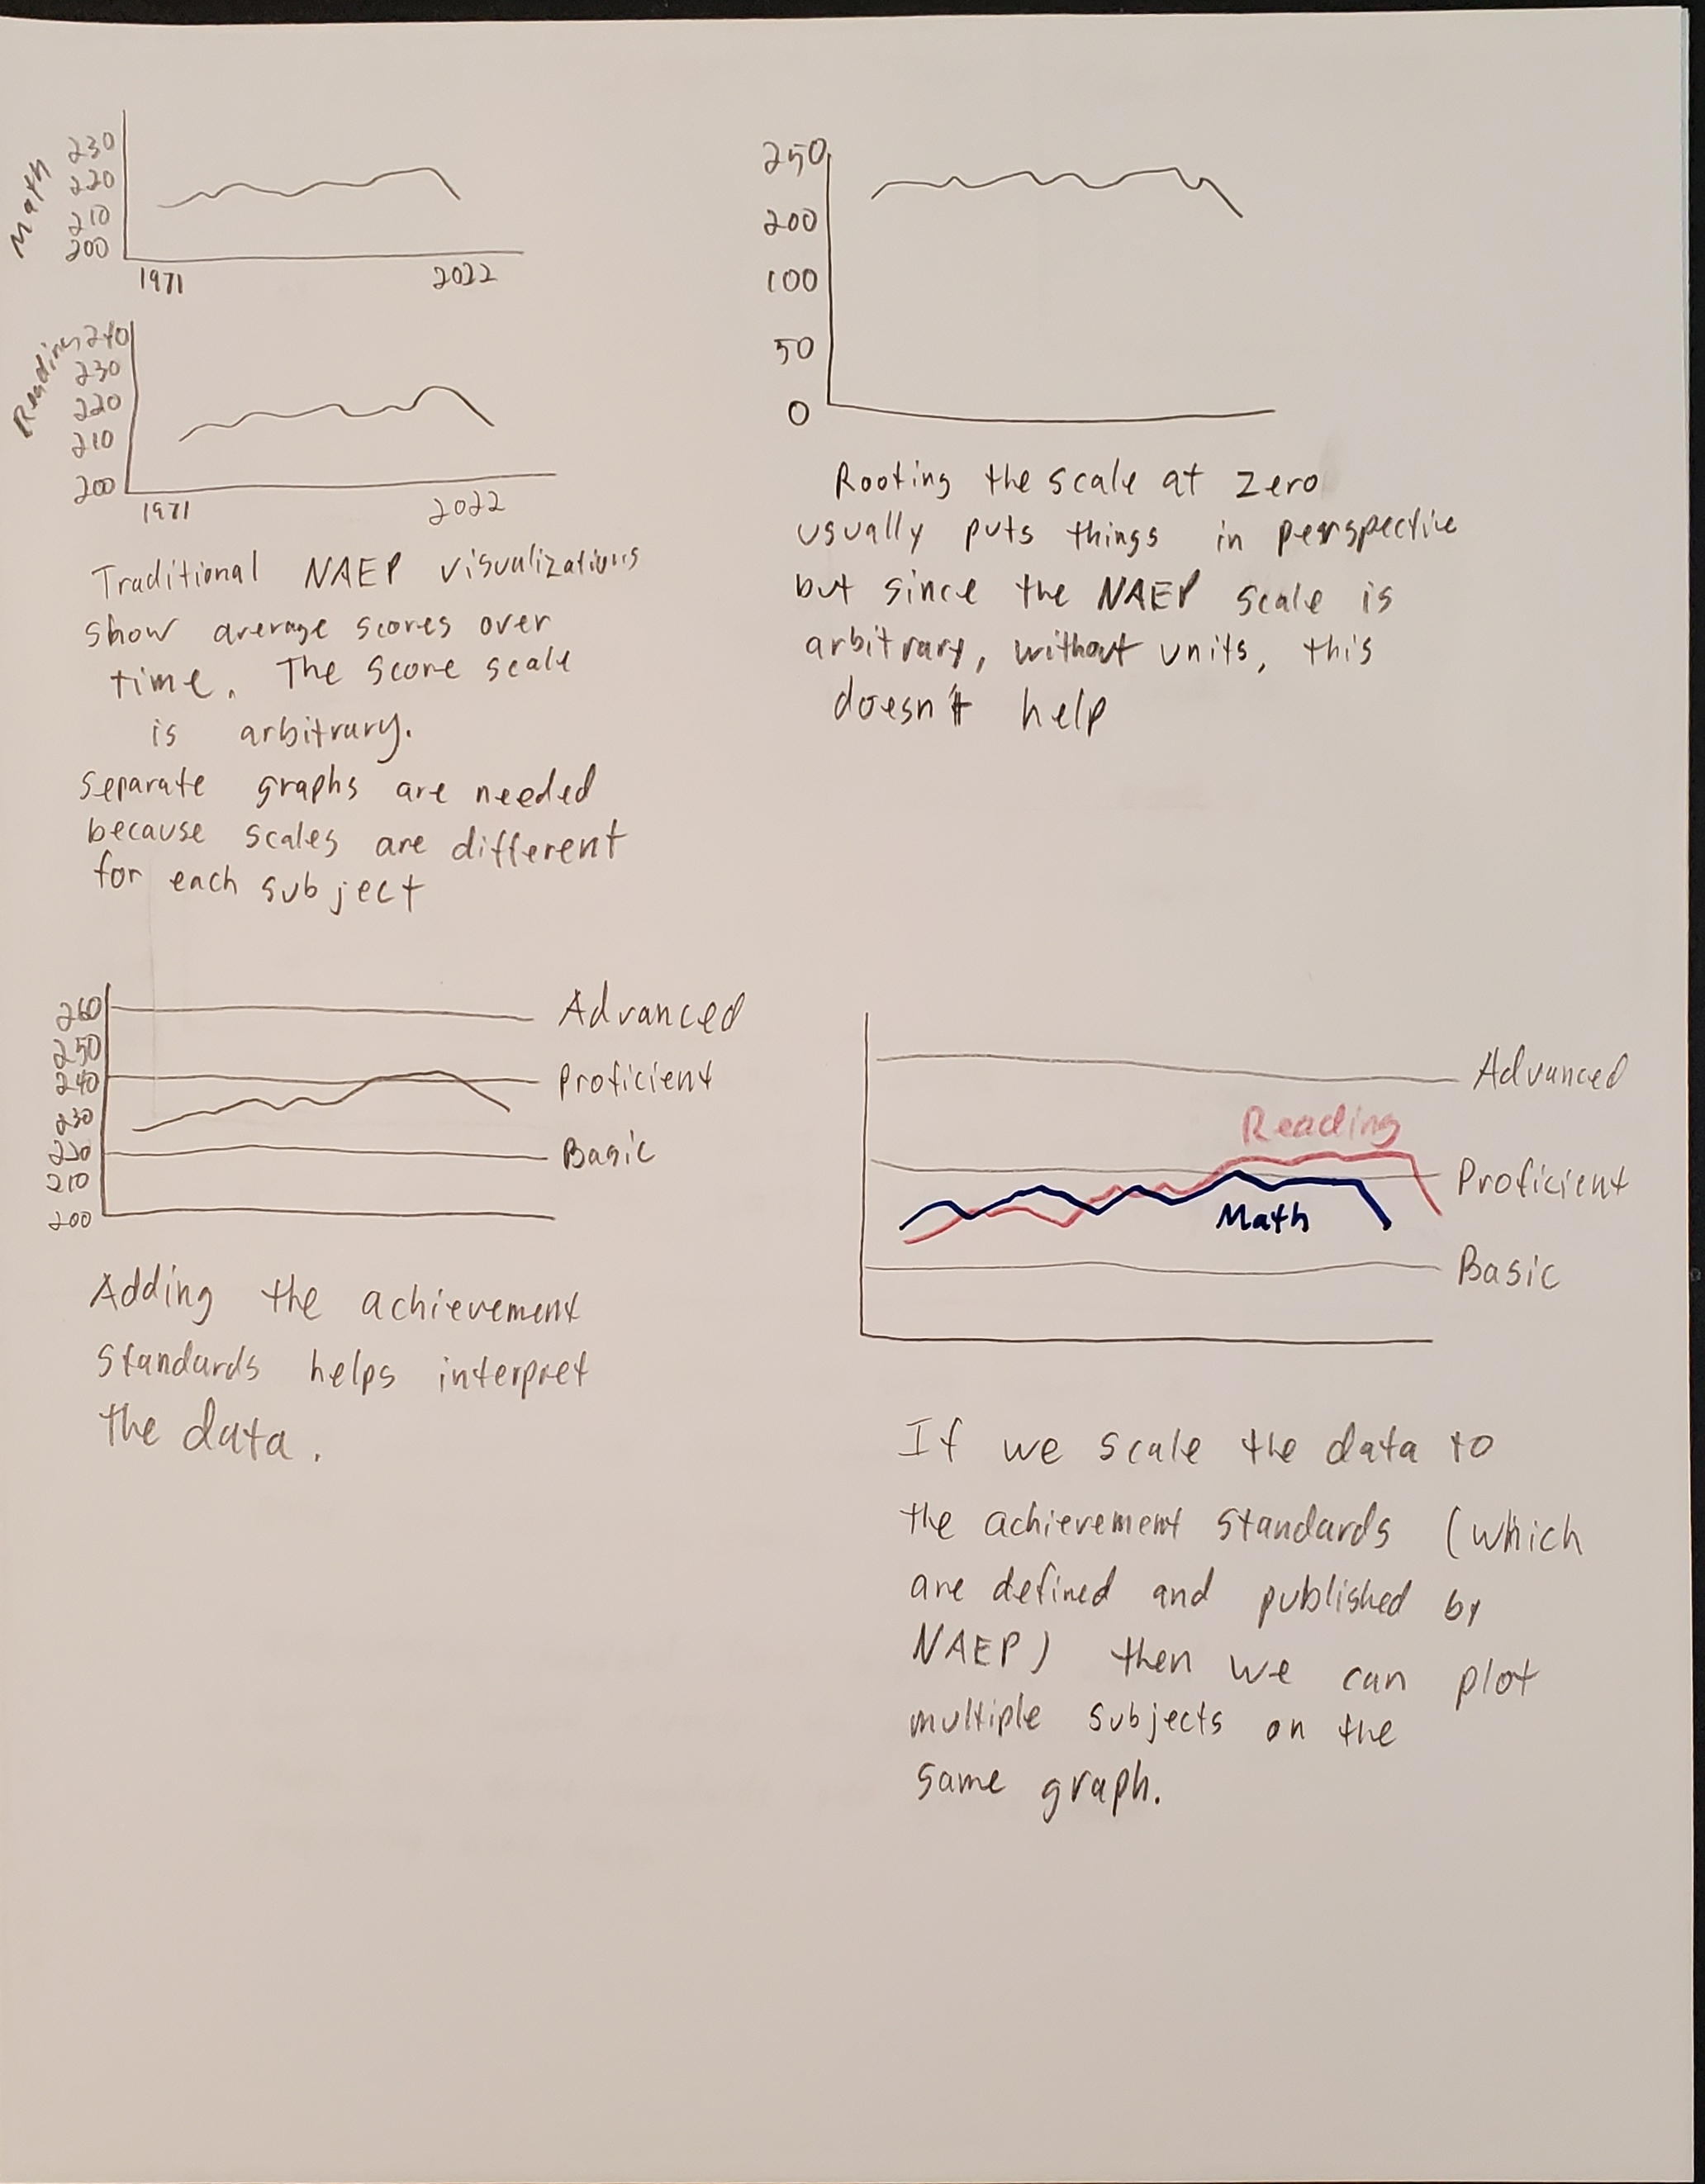 Math
230
220
210
200
1971 2022
Reading
240
230
220
210
200
1971 2022
Traditional NAEP visualizations
show average scores over
time. The score scale
is arbitrary.
Separate graphs are needed
because scales are different
for each subject
250
200
100
50
0
Rooting the scale at zero
usually puts things in perspective
but since the NAEP scale is
arbitrary, without units, this
doesn't help
260
250
240
230
220
210
200
Advanced
Proficient
Basic
Adding the achievement
standards helps interpret
the data.
Advanced
Reading
Proficient
Math
Basic
If we scale the data to
the achievement standards (which
are defined and published by
NAEP) then we can plot
multiple subjects on the
same graph.